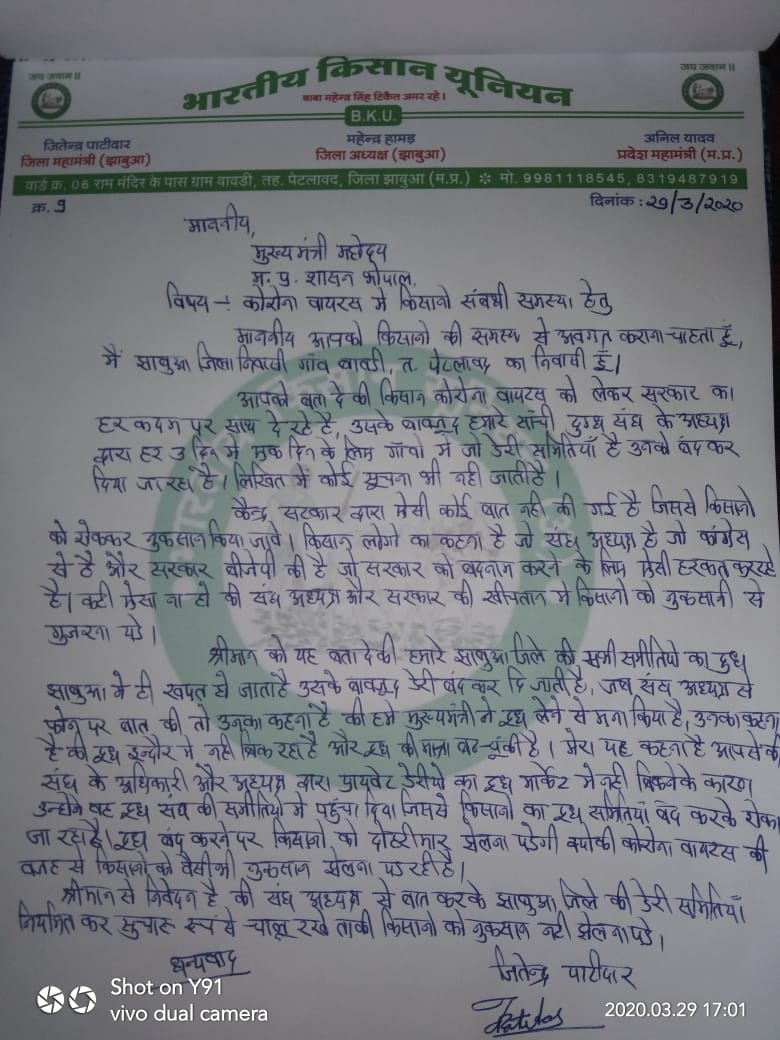 जय जवान ॥
जय जवान ॥
भारतीय किसान यूनियन
बाबा महेन्द्र सिंह टिकैत अमर रहे ।
B.K.U.
जितेन्द्र पाटीदार
जिला महामंत्री (झाबुआ)
महेन्द्र हामड़
जिला अध्यक्ष (झाबुआ)
अनिल यादव
प्रदेश महामंत्री (म.प्र.)
वार्ड क्र. 06 राम मंदिर के पास ग्राम बावडी, तह. पेटलावद, जिला झाबुआ (म.प्र.) ❊ मो. 9981118545, 8319487919
क्र. 9
दिनांक : 29/3/2020
माननीय,
मुख्यमंत्री महोदय
म. प्र. शासन भोपाल.
विषय -: कोरोना वायरस में किसानो संबधी समस्या हेतु
माननीय आपको किसानो की समस्य से अवगत कराना चाहता हूँ,
मैं झाबुआ जिला निवासी गांव बावडी, त. पेटलावद का निवासी हूँ।
आपको बता दे की किसान कोरोना वायरस को लेकर सरकार का
हर कदम पर साथ दे रहे है, उसके बावजूद हमारे सांची दुग्ध संघ के अध्यक्ष
द्वारा हर 3 दिन में एक दिन के लिए गाँवो में जो डेरी समितियाँ है उनको बंद कर
दिया जा रहा है। लिखित में कोई सूचना भी नही जाती है।
केन्द्र सरकार द्वारा ऐसी कोई बात नही की गई है जिससे किसानो
को रोककर नुकसान किया जावे। किसान लोगो का कहना है जो संघ अध्यक्ष है जो कांग्रेस
से है और सरकार बीजेपी की है जो सरकार को बदनाम करने के लिए ऐसी हरकत कर रहे
है। कही ऐसा ना हो की संघ अध्यक्ष और सरकार की खीचतान में किसानो को नुकसानी से
गुजरना पडे।
श्रीमान को यह बता दे की हमारे झाबुआ जिले की सभी समीतियो का दुध
झाबुआ मे ही खपत हो जाता है उसके बावजूद डेरी बंद कर दि जाती है, जब संघ अध्यक्ष से
फोन पर बात की तो उनका कहना है की हमे मुख्यमंत्री ने दुध लेने से मना किया है, उनका कहना
है की दुध इन्दौर मे नही बिक रहा है और दुध की मात्रा बढ-चूंकी है। मेरा यह कहना है आपसे की
संघ के अधिकारी और अध्यक्ष द्वारा प्रायवेट डेरीयो का दुध मार्केट मे नही बिकने के कारण
उन्होने वह दुध संघ की समीतियो मे पहुंचा दिया जिससे किसानो का दुध समितियां बंद करके रोका
जा रहा है। दुध बंद करने पर किसानो को दोहरीमार झेलना पडेगी क्योकी कोरोना वायरस की
वजह से किसानो को वैसी भी नुकसान झेलना पड रही है।
श्रीमान से निवेदन है की संघ अध्यक्ष से बात करके झाबुआ जिले की डेरी समितियाँ
नियमित कर सुचारू रूप से चालू रखे ताकी किसानो को नुकसान नही झेलना पडे।
धन्यवाद
जितेन्द्र पाटीदार
Shot on Y91
vivo dual camera
2020.03.29 17:01